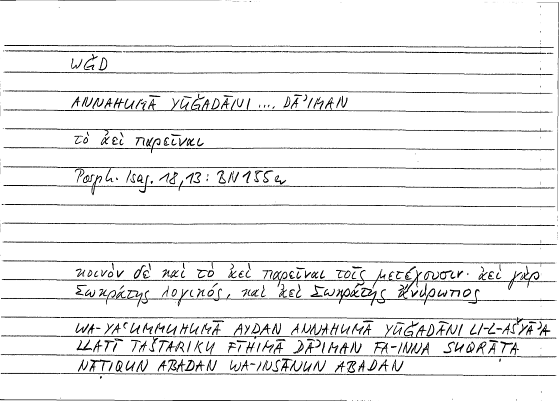 WǦD
ANNAHUMĀ YŪǦADĀNI ... DĀʾIMAN
τὸ ἀεὶ παρεῖναι
Porph. Isag. 18,13: BN 155
κοινὸν δὲ καὶ τὸ ἀεὶ παρεῖναι τοῖς μετέχουσιν· ἀεὶ γὰρ
Σωκράτης λογικός, καὶ ἀεὶ Σωκράτης ἄνθρωπος
WA-YAʿUMMUHUMĀ AYḌAN ANNAHUMĀ YŪǦADĀNI LI-L-AŠYĀʾA
LLATĪ TAŠTARIKU FĪHIMĀ DĀʾIMAN FA-INNA SUQRĀṬA
NĀṬIQUN ABADAN WA-INSĀNUN ABADAN